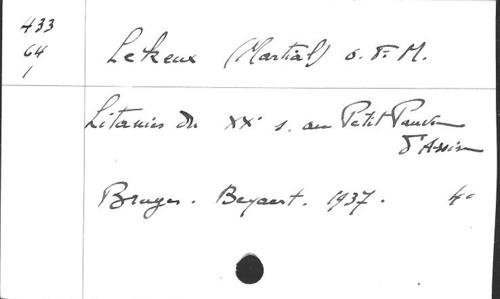 433
64
1
Lekeux (Martial) o. F. M.
Litanies du XXe s. au Petit Pauvre
d'Assise
Bruges. Beyaert. 1937. 4°